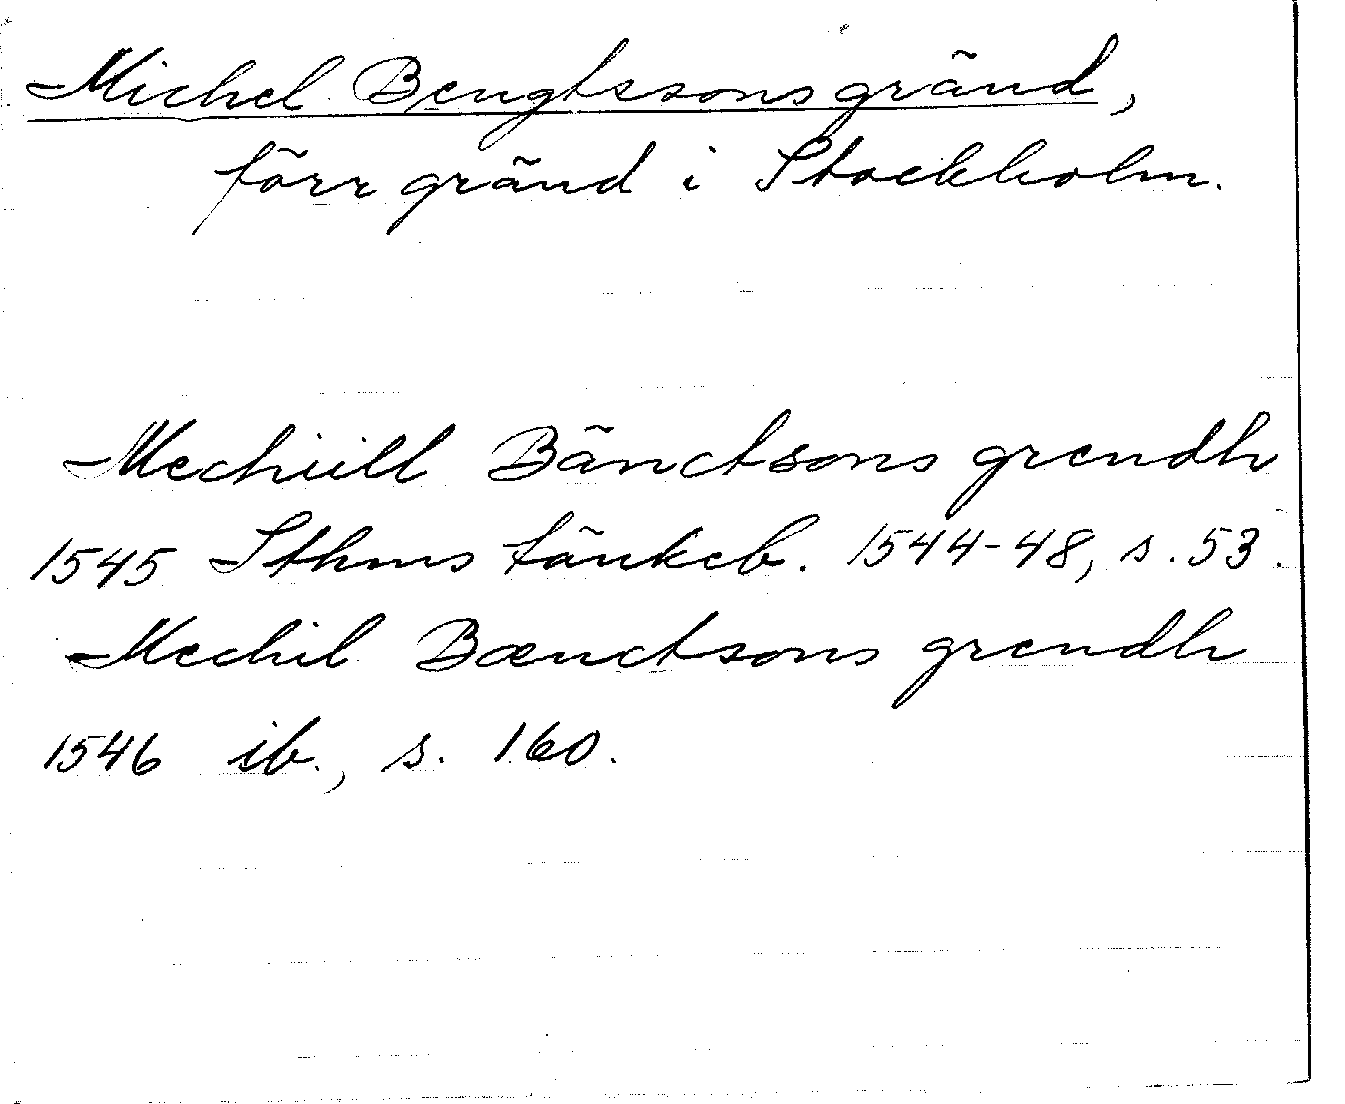 Michel Bengtssons gränd,
förr gränd i Stockholm.
Mechiill Bänctsons grendh
1545 Sthms tänkeb. 1544-48, s. 53.
Mechil Bænctsons grendh
1546 ib., s. 160.